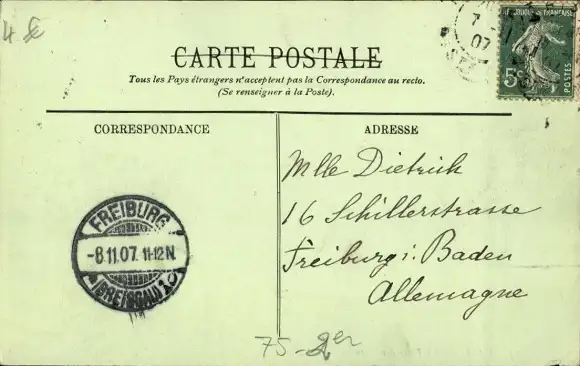 4 Sc
CARTE POSTALE
Tous les Pays étrangers n'acceptent pas la Correspondance au recto.
(Se renseigner à la Poste).
CORRESPONDANCE
ADRESSE
RÉPUBLIQUE FRANÇAISE
5c
POSTES
7
07
Mlle Dietrich
16 Schillerstrasse
Freiburg i. Baden
Allemagne
FREIBURG
-8.11.07. 11-12 N.
(BREISGAU) 1
75-2er